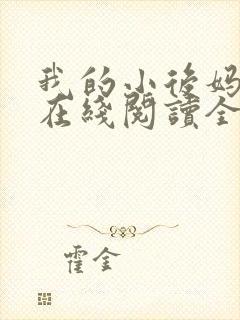 我的小後妈
在綫閱讀全
霍金